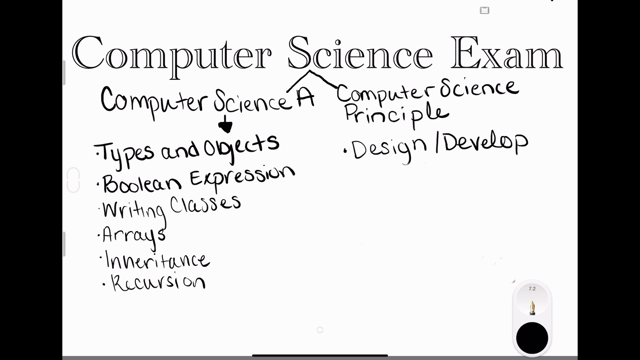 Computer Science Exam
Computer Science A
Computer Science
Principle
·Types and Objects
·Design/Develop
·Boolean Expression
·Writing Classes
·Arrays
·Inheritance
·Recursion